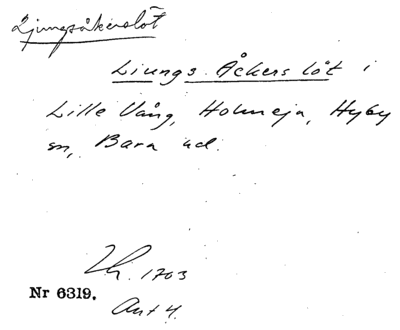 Ljungsåkerslöt
Liungs Åckers löt i
Lille Vång, Holmeja, Hyby
sn, Bara hd.
Lh. 1703
Nr 6319.
Ant 4.